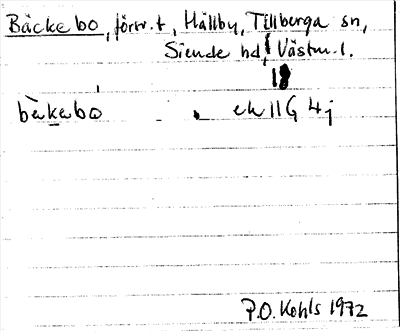 Bäckebo, förr. t, Hällby, Tillberga sn,
Siende hd, Västm. l.
18
bèkebo ek 11G 4j
P.O. Kohls 1972